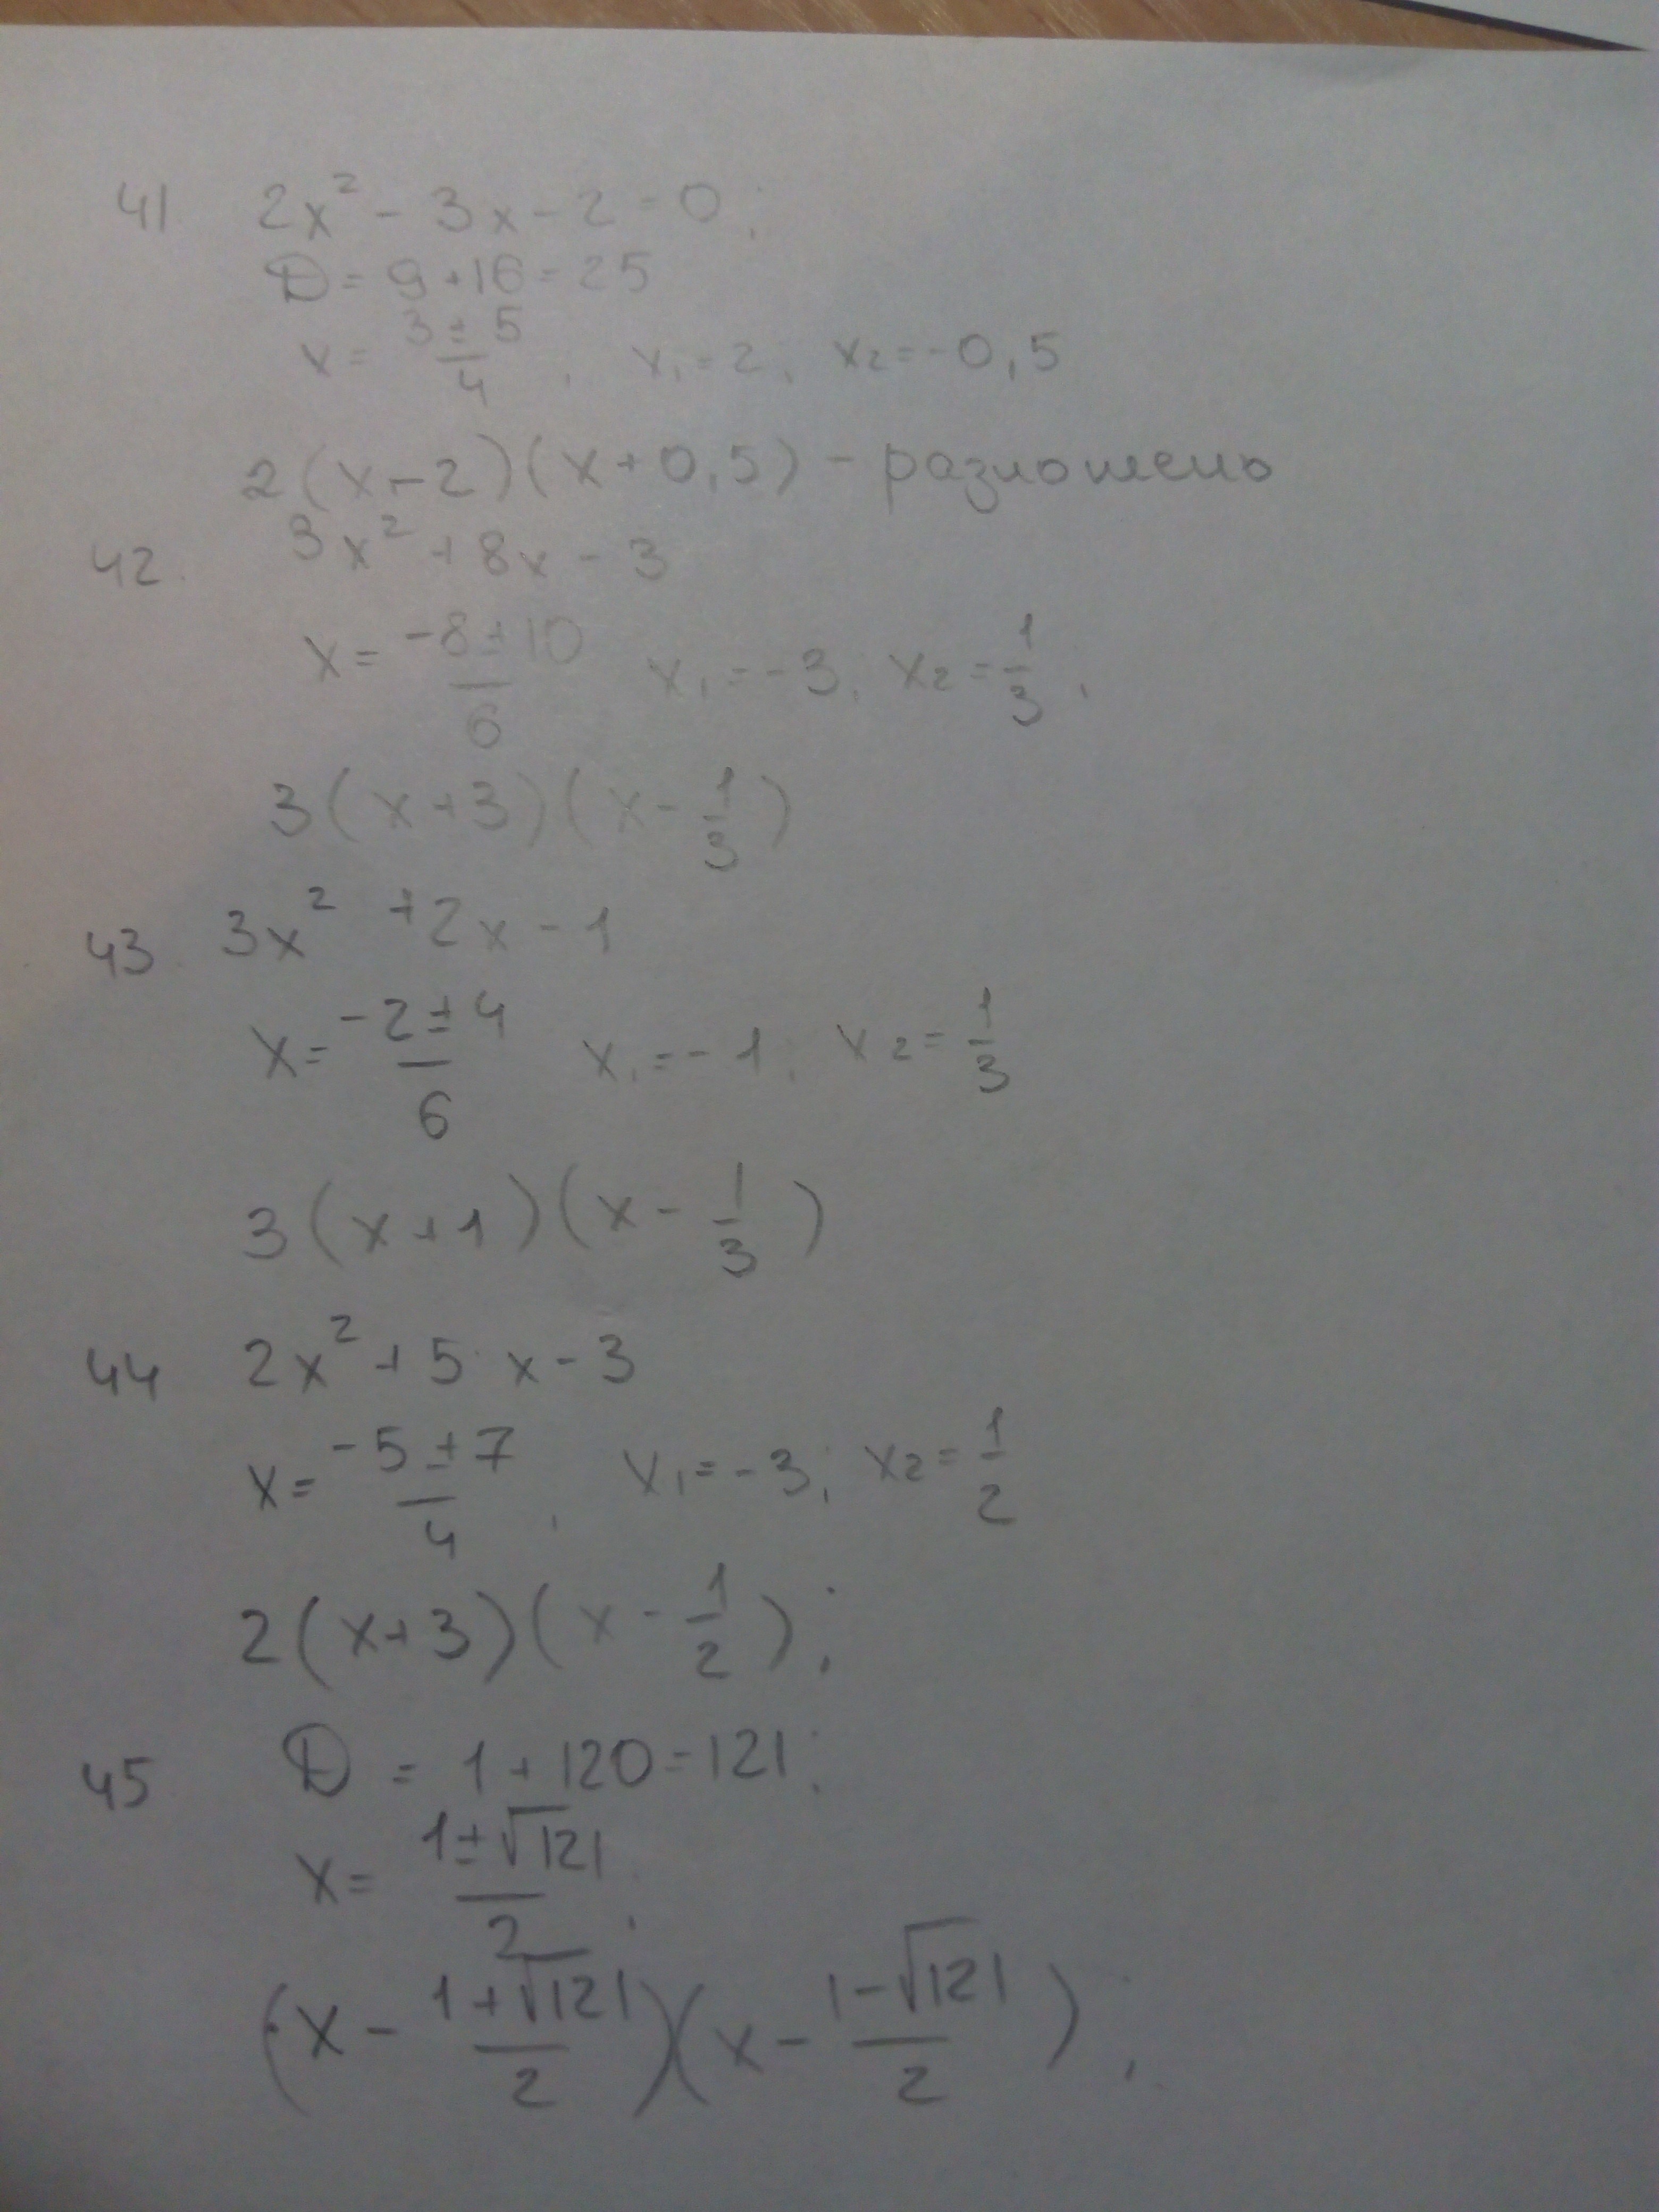 41 2x² - 3x - 2 = 0;
D = 9 + 16 = 25
x = (3 ± 5)/4, x₁ = 2; x₂ = -0,5
2(x - 2)(x + 0,5) - разложено
42. 3x² + 8x - 3
x = (-8 ± 10)/6 x₁ = -3; x₂ = 1/3,
3(x + 3)(x - 1/3)
43. 3x² + 2x - 1
x = (-2 ± 4)/6 x₁ = -1; x₂ = 1/3
3(x + 1)(x - 1/3)
44 2x² + 5x - 3
x = (-5 ± 7)/4, x₁ = -3; x₂ = 1/2
2(x + 3)(x - 1/2);
45 D = 1 + 120 = 121;
x = (1 ± √121)/2;
(x - (1 + √121)/2)(x - (1 - √121)/2);